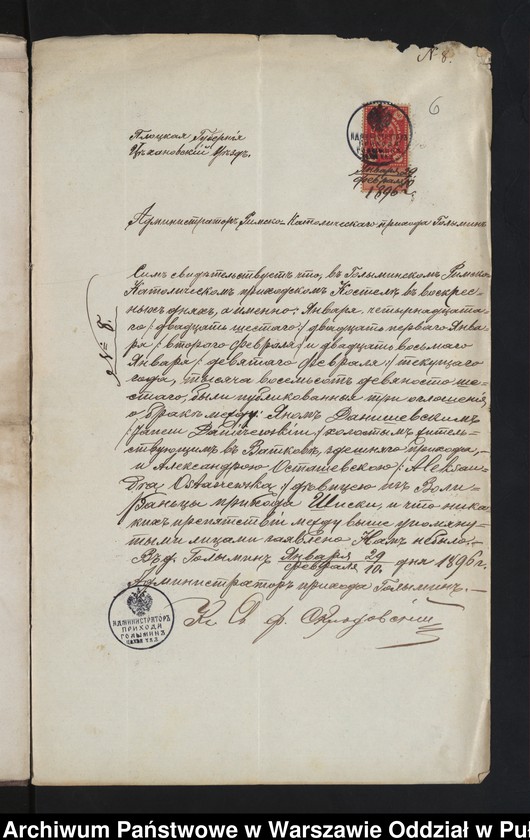 № 8.
6
Плоцкая Губернія
Цѣхановскій Уѣздъ.
января 29
февраля 10
1896 г.
Администраторъ Римско-Католическаго прихода Голыминъ
№ 8.
Симъ свидѣтельствуетъ что, въ Голыминскомъ Римско-
Католическомъ приходскомъ Костелѣ въ воскрес-
ныхъ дняхъ, а именно: Января четырнадцата-
го /: двадцать шестаго :/ двадцать перваго Янва-
ря /: втораго февраля :/ и двадцать восьмаго
Января /: девятаго февраля :/ текущаго
года, тысяча восемьсотъ девяносто ше-
стаго, были публикованныя три оглашенія
о бракѣ между: Яномъ Данишевскимъ
холостымъ житель-
ствующимъ въ Ватковѣ, здешняго прихода,
и Александрою Осташевскою /: Aleksan-
dra Ostaszewska :/ дѣвицею изъ Воли-
прихода и что ника-
кихъ препятствій между выше упомяну-
тыми лицами заявлено Намъ небыло. –
Въ д. Голыминъ Января 29 дня 1896 г.
февраля 10.
Администраторъ прихода Голыминъ. –
АДМИНИСТРАТОРЪ
ПРИХОДА
ГОЛЫМИНЪ
Кс.
Archiwum Państwowe w Warszawie Oddział w Pu